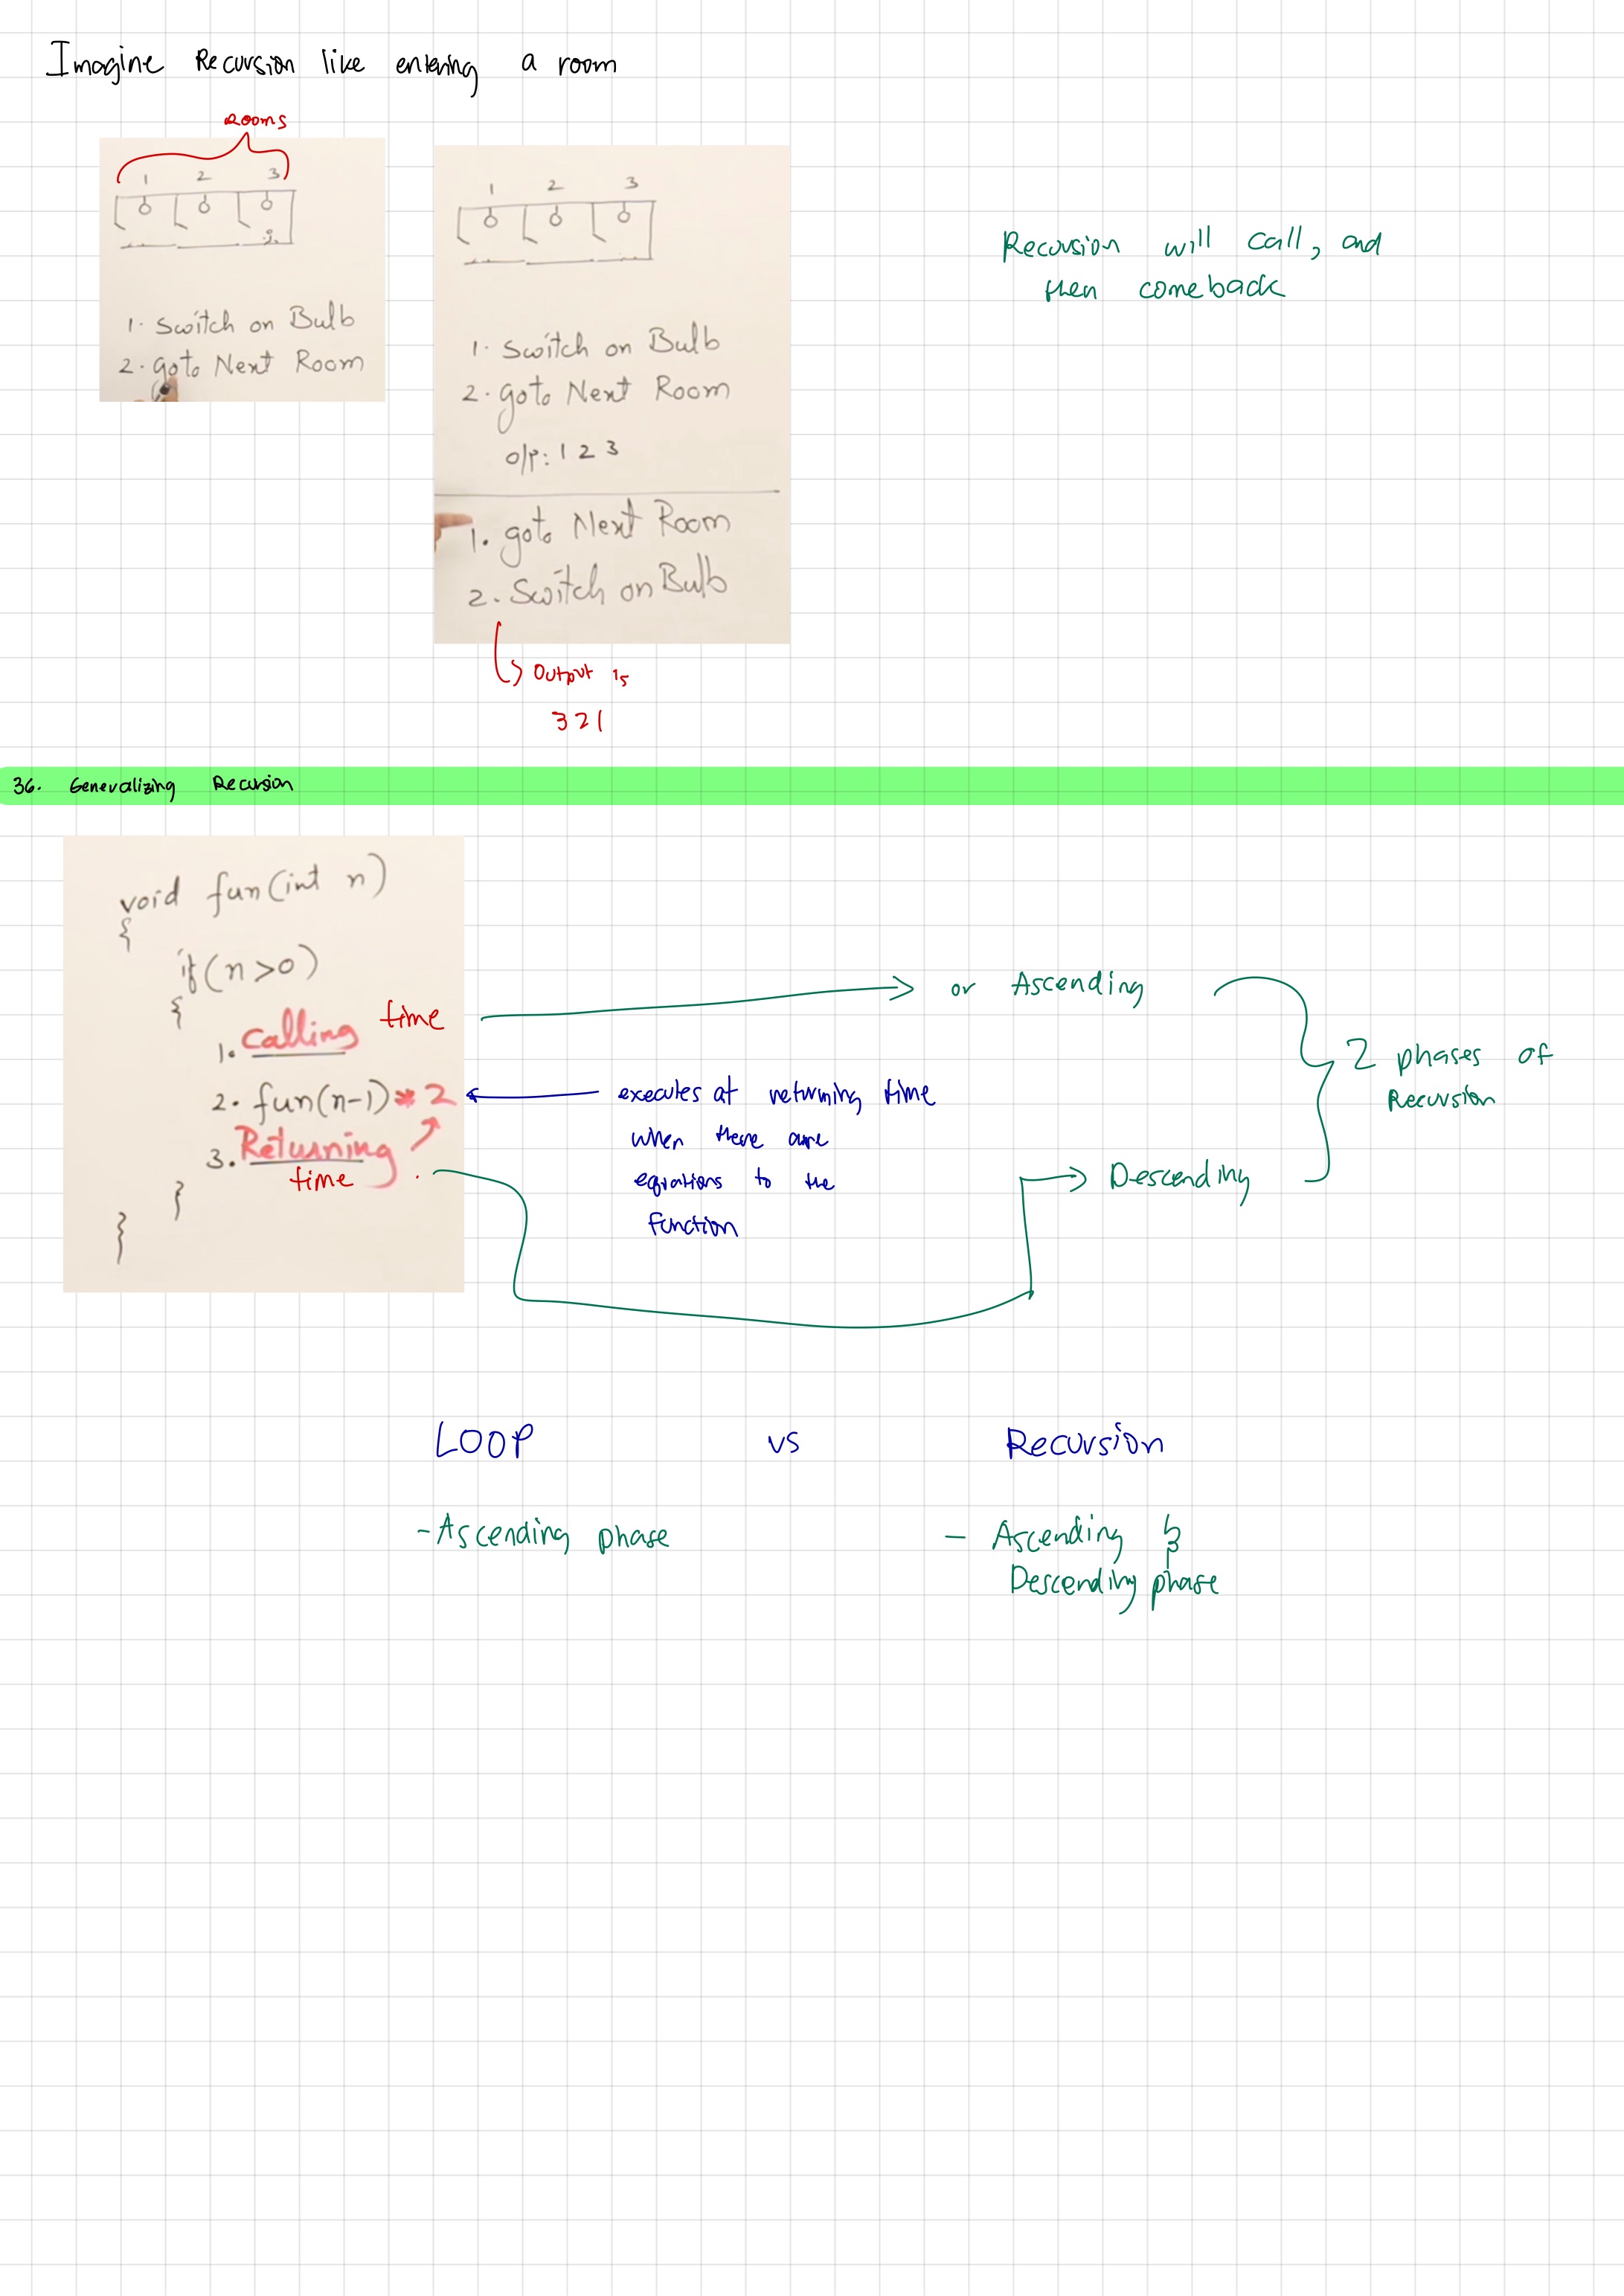 Imagine Recursion like entering a room
Rooms
1 2 3
1. Switch on Bulb
2. goto Next Room
1 2 3
1. Switch on Bulb
2. goto Next Room
o/p: 1 2 3
1. goto Next Room
2. Switch on Bulb
Output is
321
Recursion will call, and
then comeback
36. Generalizing Recursion
void fun(int n)
{
if(n>0)
{
1. Calling time
2. fun(n-1)* 2
3. Returning
time
}
}
executes at returning time
when there are
equations to the
function
or Ascending
Descending
2 phases of
Recursion
LOOP vs Recursion
- Ascending phase
- Ascending &
Descending phase